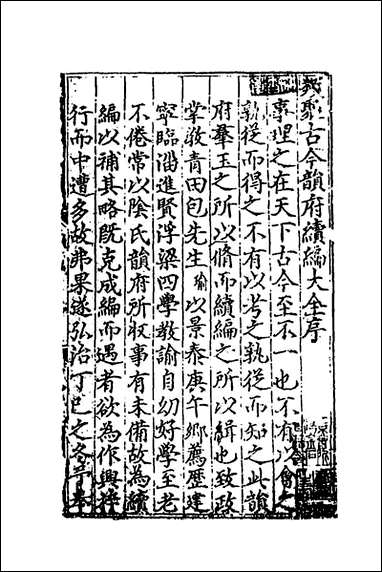 類聚古今韻府續編大全序
事理之在天下古今至不一也不有以會之
孰從而得之不有以考之孰從而知之此韻
府羣玉之所以脩而續編之所以緝也致政
掌教青田包先生瑜以景泰庚午鄉薦歷建
寧臨淄進賢浮梁四學教諭自幼好學至老
不倦常以陰氏韻府所収事有未備故為續
編以補其略既克成編而遇者欲為作興梓
行而中遭多故弗果遂弘治丁巳之冬予奉